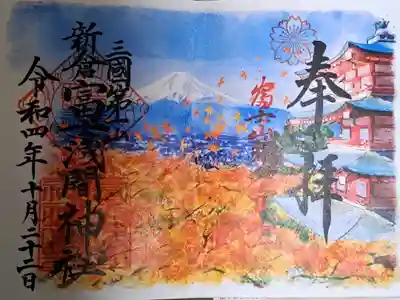 奉拝
三國第一山
新倉富士浅間神社
令和四年十月二十二日